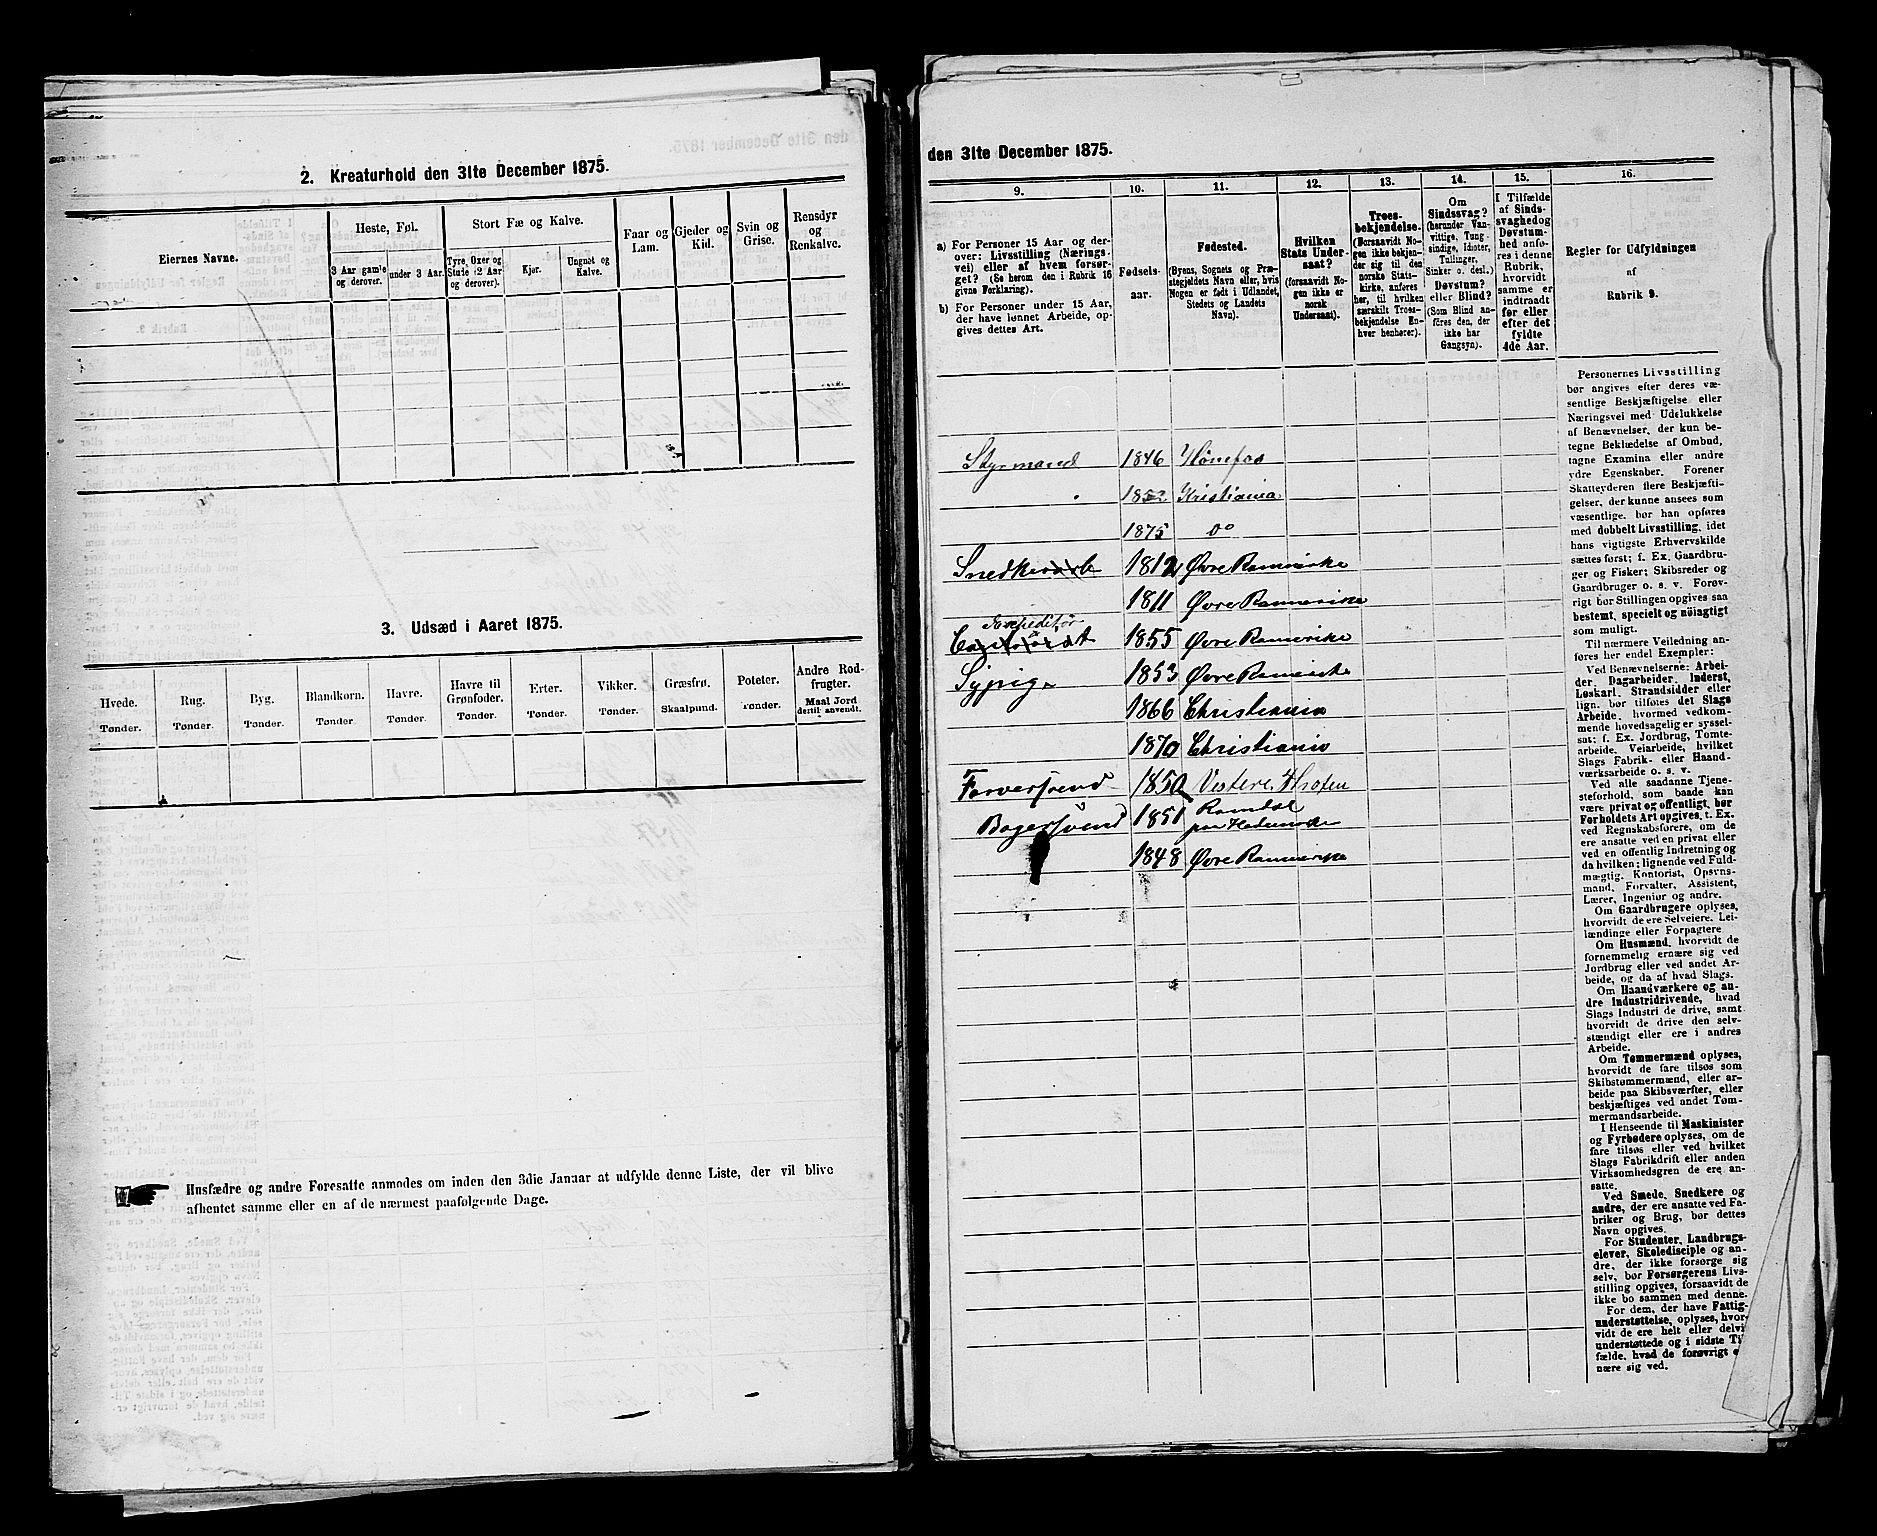 2. Kreaturhold den 31te December 1875.
Eiernes Navne.
Heste, Føl.
3 Aar gamle
og derover.
under 3 Aar.
Stort Fæ og Kalve.
Tyre, Oxer og
Stude (2 Aar
og derover).
Kjør.
Ungnøt og
Kalve.
Faar og
Lam.
Gjeder og
Kid.
Svin og
Grise.
Rensdyr
og
Renkalve.
3. Udsæd i Aaret 1875.
Hvede.
Tønder.
Rug.
Tønder.
Byg.
Tønder.
Blandkorn.
Tønder.
Havre.
Tønder.
Havre til
Grønfoder.
Tønder.
Erter.
Tønder.
Vikker.
Tønder.
Græsfrø.
Skaalpund.
Poteter.
Tønder.
Andre Rod-
frugter.
Maal Jord
dertil anvendt.
Husfædre og andre Foresatte anmodes om inden den 3die Januar at udfylde denne Liste, der vil blive
afhentet samme eller en af de nærmest paafølgende Dage.
den 31te December 1875.
9.
a) For Personer 15 Aar og der-
over: Livsstilling (Nærings-
vei) eller af hvem forsør-
get? (Se herom den i Rubrik 16
givne Forklaring).
b) For Personer under 15 Aar,
der have lønnet Arbeide, op-
gives dettes Art.
10.
Fødsels-
aar.
11.
Fødested.
(Byens, Sognets og Præ-
stegjeldets Navn eller, hvis
Nogen er født i Udlandet,
Stedets og Landets
Navn).
12.
Hvilken
Stats Under-
saat?
(forsaavidt No-
gen ikke er
norsk
Undersaat).
13.
Troes-
bekjendelse.
(Forsaavidt No-
gen ikke bekjen-
der sig til den
norske Stats-
kirke, anføres
her, til hvilken
særskilt Troes-
bekjendelse En-
hver henhører).
14.
Om
Sindssvag?
(herunder Van-
vittige, Tung-
sindige, Idioter,
Tullinger,
Sinker o. desl.)
Døvstum?
eller Blind?
(Som Blind an-
føres den, der
ikke har
Gangsyn).
15.
I Tilfælde
af Sinds-
svaghed og
Døvstum-
hed anfø-
res i denne
Rubrik,
hvorvidt
samme er
indtraadt
før eller
efter det
fyldte
4de Aar.
16.
Regler for Udfyldningen
af
Rubrik 9.
Styrmand 1846 Hönefos
1852 Kristiania
1875 Do
Snedkerarb 1812 Øvre Romerike
1811 Øvre Romerike
Expeditör
1855 Øvre Romerike
Sypige 1853 Øvre Romerike
1866 Christiania
1870 Christiania
Farversvend 1850 Vestere Thoten
Bagersvend 1851 Romdal
paa Hedemarke
1848 Øvre Romerike
Personernes Livsstilling
bør angives efter deres væ-
sentlige Beskjæftigelse eller
Næringsvei med Udelukkelse
af Benævnelser, der kun be-
tegne Beklædelse af Ombud,
tagne Examina eller andre
ydre Egenskaber. Forener
Skatteyderen flere Beskjæfti-
gelser, der kunne ansees som
væsentlige, bør han opføres
med dobbelt Livsstilling, idet
hans vigtigste Erhvervskilde
sættes først; f. Ex. Gaardbru-
ger og Fisker; Skibsreder og
Gaardbruger o. s. v. Forøv-
rigt bør Stillingen opgives saa
bestemt, specielt og nøiagtigt
som muligt.
Til nærmere Veiledning an-
føres her endel Exempler:
Ved Benævnelserne: Arbei-
der, Dagarbeider, Inderst,
Løskarl, Strandsidder eller
lign. bør tilføies det Slags
Arbeide, hvormed vedkom-
mende hovedsagelig er syssel-
sat; f. Ex. Jordbrug, Tomte-
arbeide, Veiarbeide, hvilket
Slags Fabrik- eller Haand-
værksarbeide o. s. v.
Ved alle saadanne Tjene-
steforhold, som baade kan
være privat og offentligt, bør
Forholdets Art opgives, t. Ex.
ved Regnskabsførere, om de
ere ansatte ved en privat eller
ved en offentlig Indretning og
da hvilken; lignende ved Fuld-
mægtig, Kontorist, Opsyns-
mand, Forvalter, Assistent,
Lærer, Ingeniør og andre.
Om Gaardbrugere oplyses,
hvorvidt de ere Selveiere, Lei-
lændinge eller Forpagtere.
Om Husmænd, hvorvidt de
fornemmelig ernære sig ved
Jordbrug eller ved andet Ar-
beide, og da af hvad Slags.
Om Haandværkere og an-
dre Industridrivende, hvad
Slags Industri de drive, samt
hvorvidt de drive den selv-
stændigt eller ere i andres
Arbeide.
Om Tømmermænd oplyses,
hvorvidt de fare tilsøs som
Skibstømmermænd, eller ar-
beide paa Skibsværfter, eller
beskjæftiges ved andet Tøm-
mermandsarbeide.
I Henseende til Maskinister
og Fyrbødere oplyses, om de
fare tilsøs eller ved hvilket
Slags Fabrikdrift eller anden
Virksomhedsgren de ere an-
satte.
Ved Smede, Snedkere og
andre, der ere ansatte ved Fa-
briker og Brug, bør dettes
Navn opgives.
For Studenter, Landbrugs-
elever, Skoledisciple og an-
dre, der ikke forsørge sig
selv, bør Forsørgerens Livs-
stilling opgives, forsaavidt de
ikke bo sammen med denne.
For dem, der have Fattig-
understøttelse, oplyses, hvor-
vidt de ere helt eller delvi
understøttede og i sidste Til
fælde, hvad de forøvrigt e
nære sig ved.